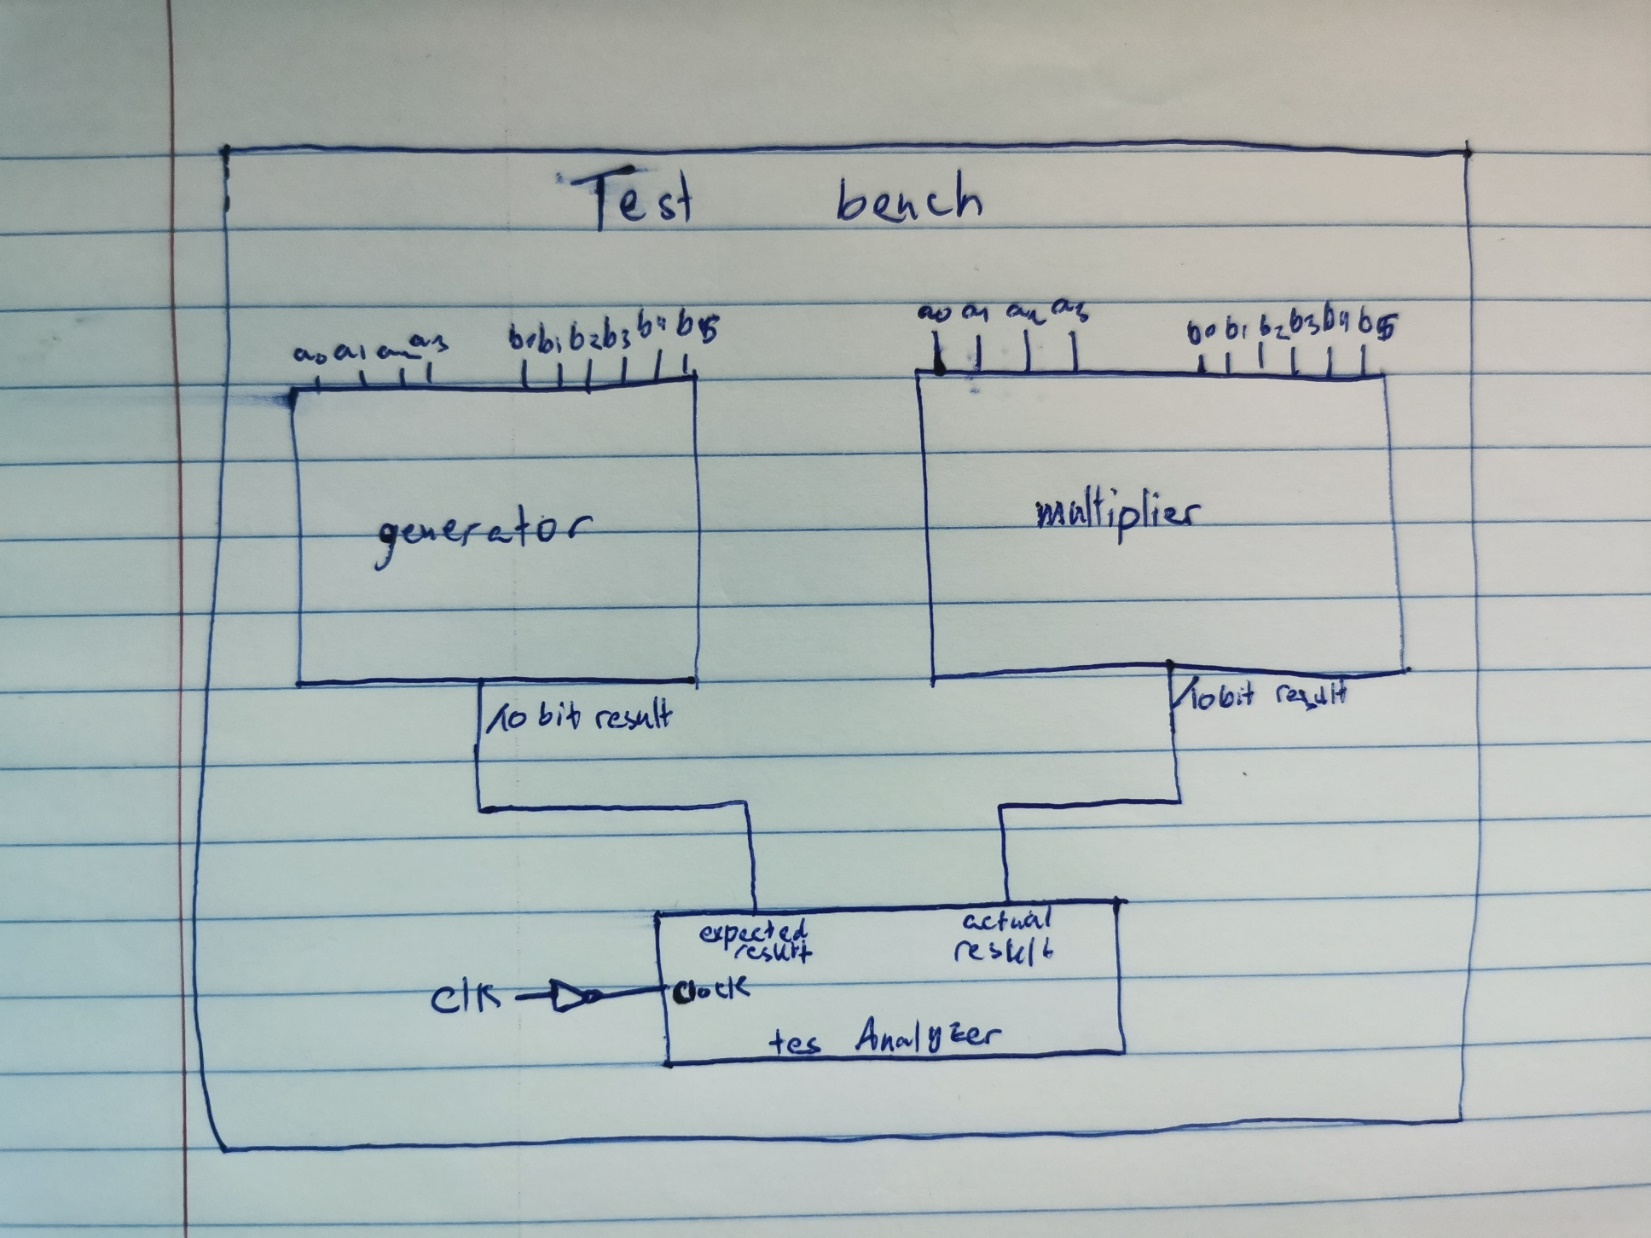 Test bench
a0 a1 a2 a3 b0 b1 b2 b3 b4 b5
a0 a1 a2 a3 b0 b1 b2 b3 b4 b5
generator
multiplier
10 bit result
10 bit result
expected
result
actual
result
clk
clock
tes Analyzer